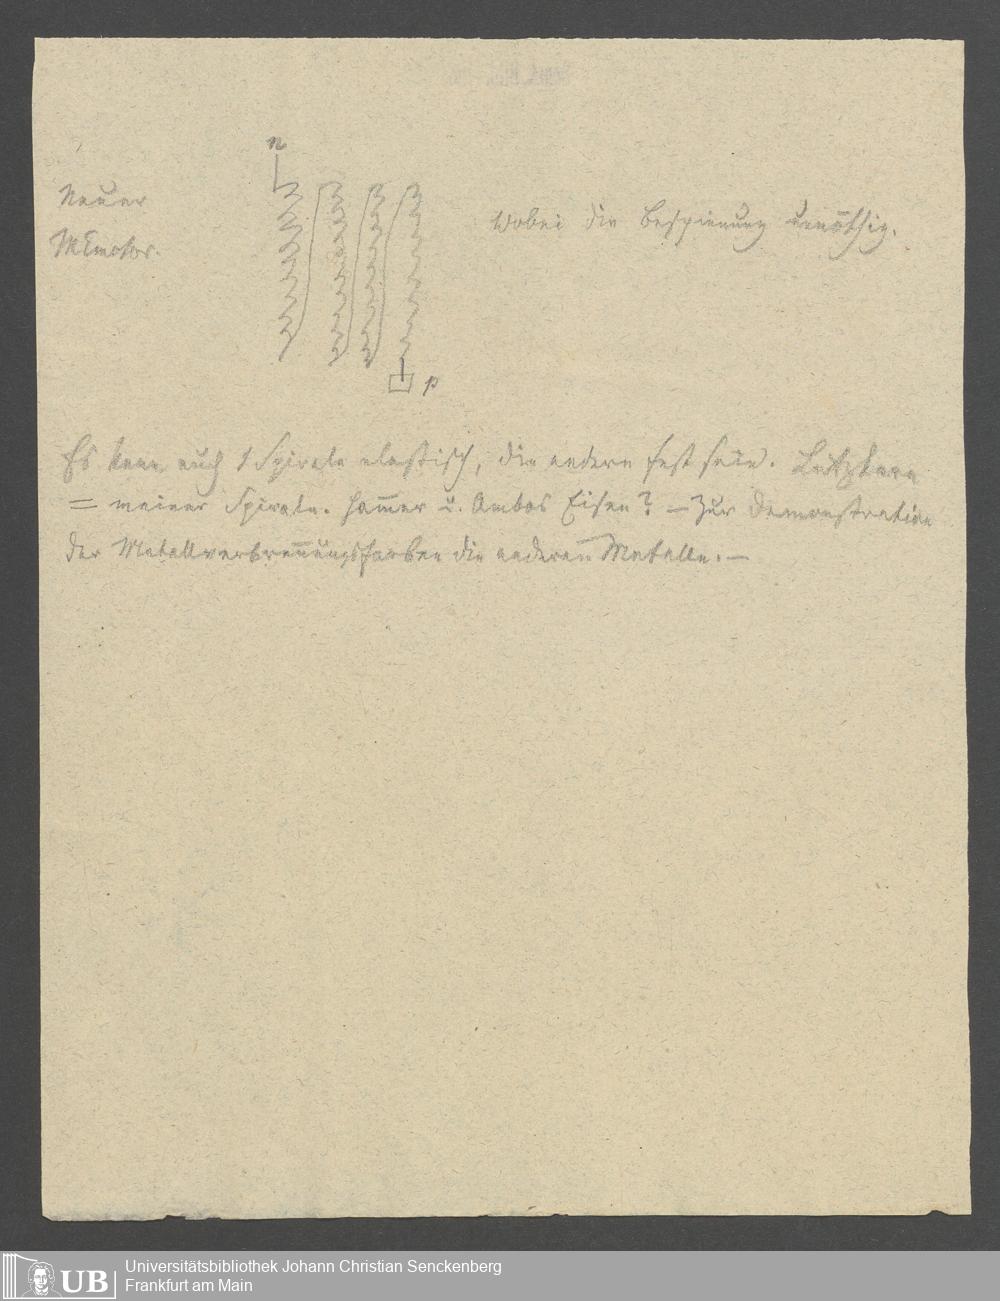 n
Neuer
MEmotor.
wobei die Bespinnung unnöthig.
p
Es kann auch 1 Spirale elastisch, die andern fest sein.
= meiner Spirale. Ham̅er u. Ambos Eisen? – Zur Demonstration
der Metallverbren̅ungsfarben die anderen Metalle. –
UB
Universitätsbibliothek Johann Christian Senckenberg
Frankfurt am Main